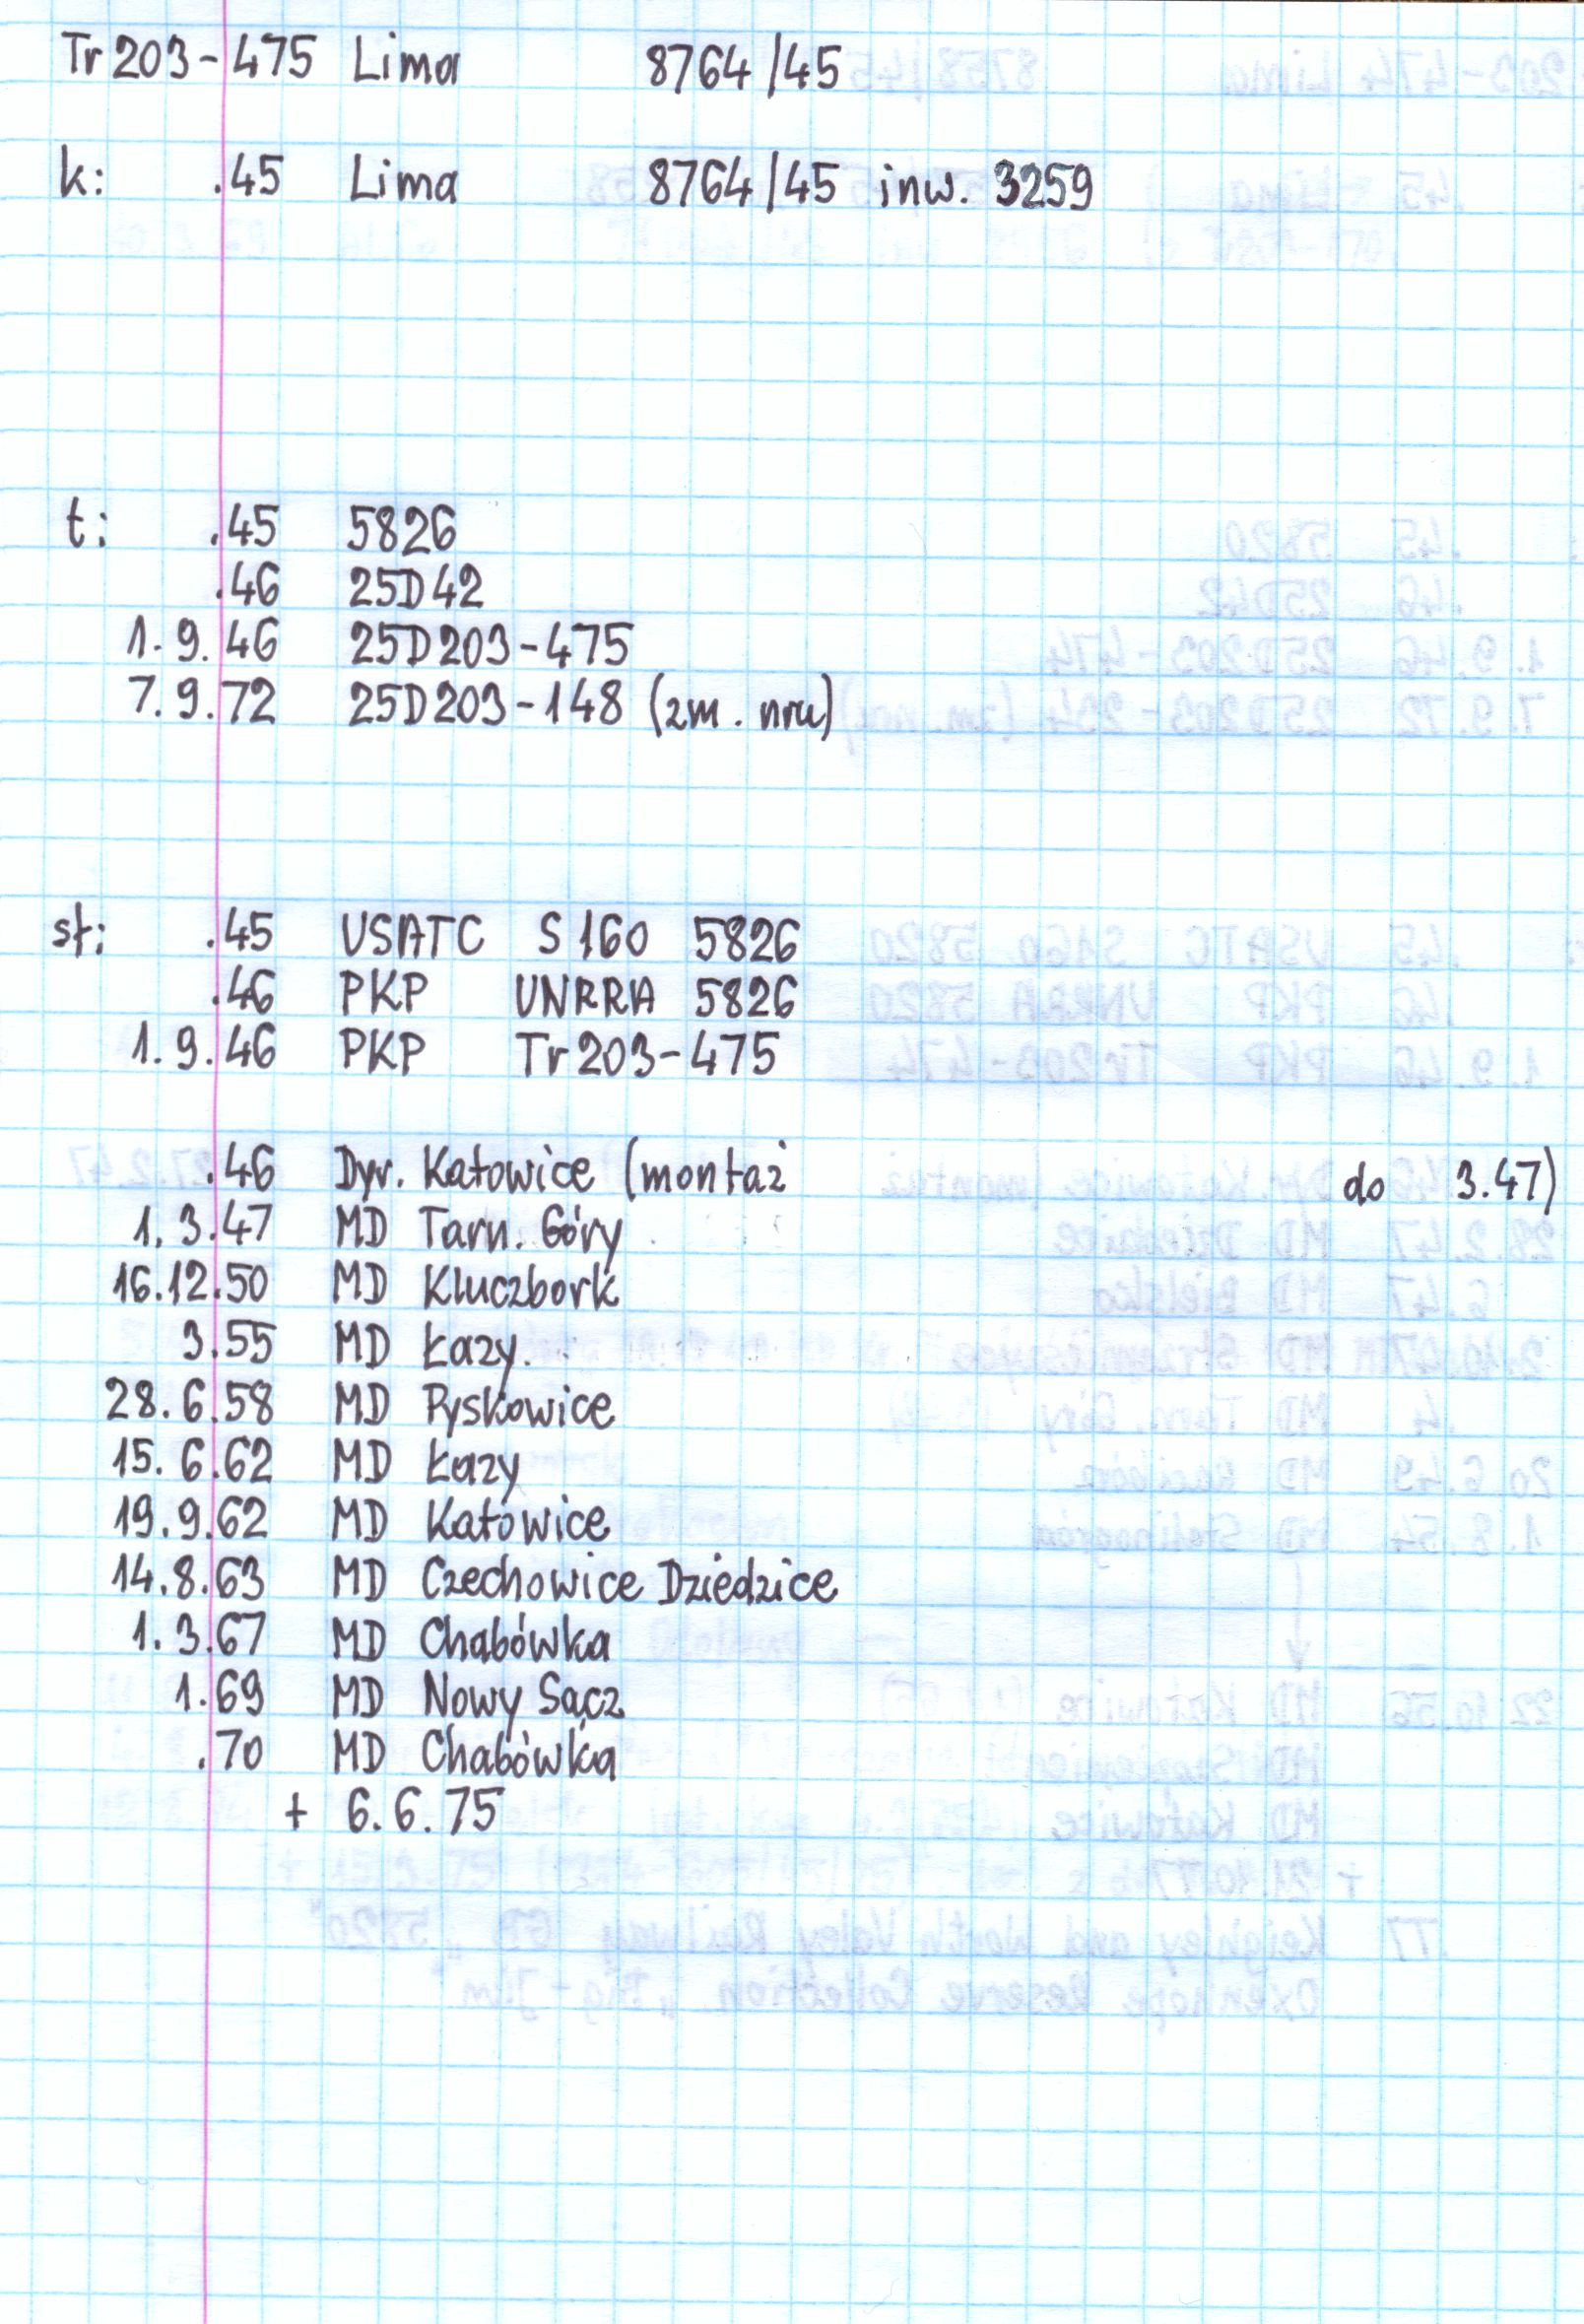 Tr203-475 Lima 8764/45
k: .45 Lima 8764/45 inw. 3259
t: .45 5826
.46 25D42
1.9.46 25D203-475
7.9.72 25D203-148 (zm. nru)
st: .45 USATC S160 5826
.46 PKP UNRRA 5826
1.9.46 PKP Tr203-475
.46 Dyr. Katowice (montaż do 3.47)
1.3.47 MD Tarn. Góry
16.12.50 MD Kluczbork
3.55 MD Łazy.
28.6.58 MD Pyskowice
15.6.62 MD Łazy
19.9.62 MD Katowice
14.8.63 MD Czechowice Dziedzice
1.3.67 MD Chabówka
1.69 MD Nowy Sącz
.70 MD Chabówka
+ 6.6.75